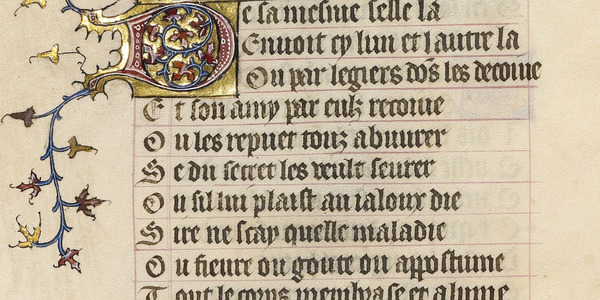 De sa mesme selle la
Enuoit cy lun et lautre la
Ou par legiers dōs les decoiue
Et son amy par eulz recoiue
Ou les repuet touz abuurer
Se du secret les veult seurer
Ou sil lui plaist au ialoux die
Sire ne scay quelle maladie
Ou fieure ou goute ou appostume
Tout le corps membrase et alume